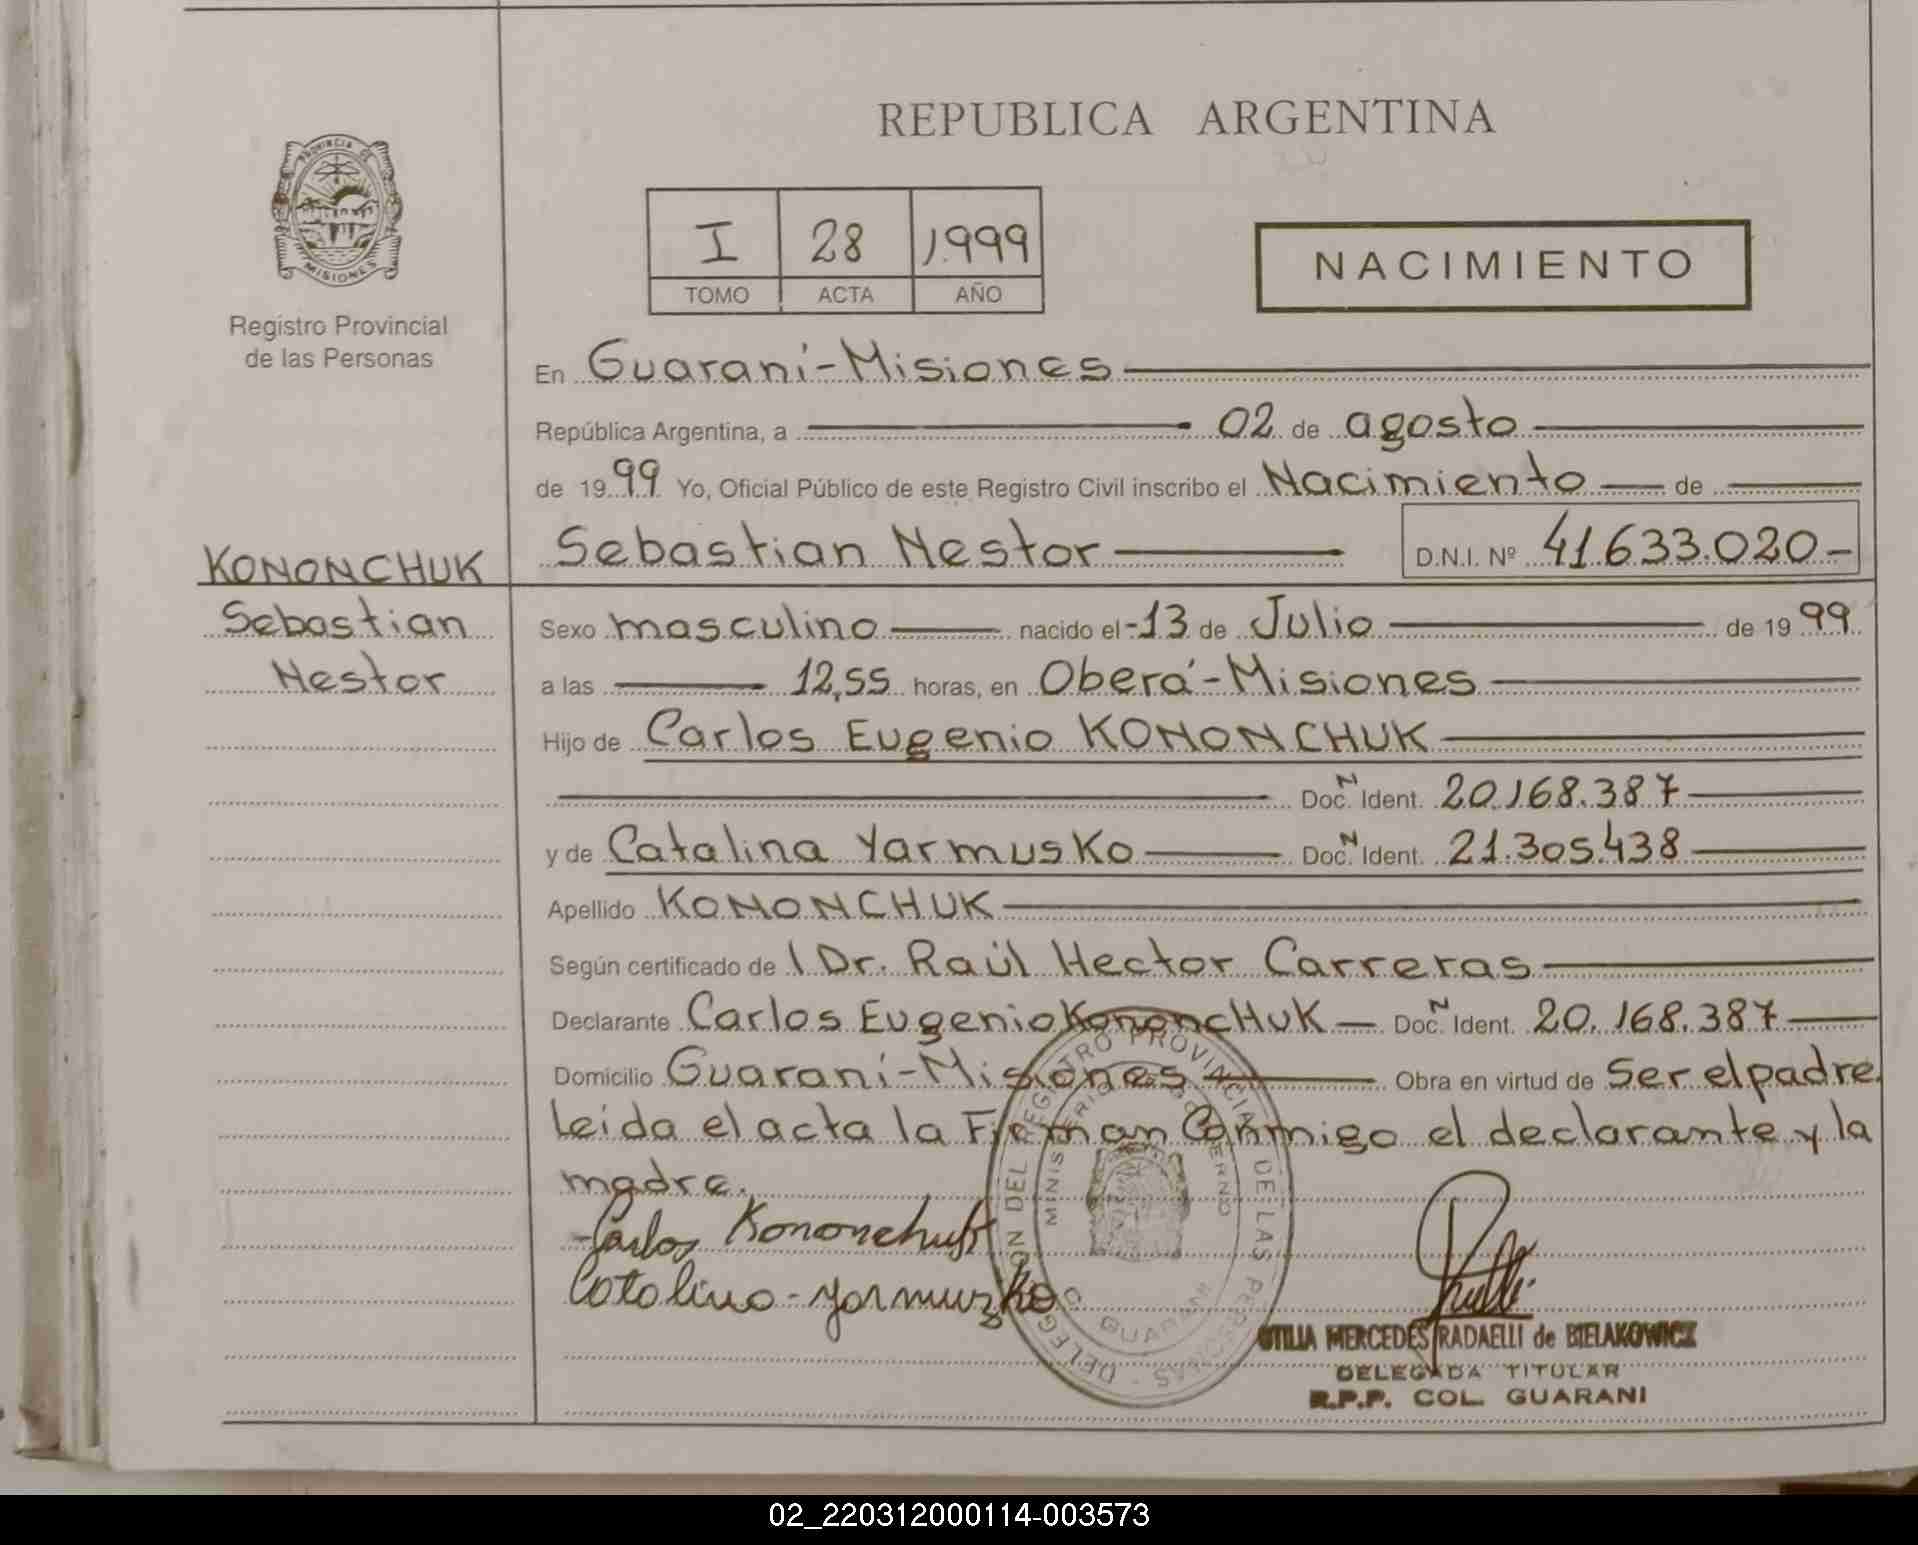 REPUBLICA ARGENTINA
PROVINCIA DE
MISIONES
Registro Provincial
de las Personas
I 28 1999
TOMO ACTA AÑO
NACIMIENTO
En Guaraní-Misiones
República Argentina, a 02 de agosto
de 1999 Yo, Oficial Público de este Registro Civil inscribo el Nacimiento de
Sebastian Nestor D.N.I. Nº 41.633.020-
KONONCHUK
Sebastian
Nestor
Sexo masculino nacido el -13 de Julio de 1999
a las 12,55 horas, en Oberá-Misiones
Hijo de Carlos Eugenio KONONCHUK
Doc. N Ident. 20.168.387
y de Catalina Yarmusko Doc. N Ident. 21.305.438
Apellido KONONCHUK
Según certificado de l Dr. Raúl Hector Carreras
Declarante Carlos Eugenio KononcHuK Doc. N Ident. 20.168.387
Domicilio Guaraní-Misiones Obra en virtud de Ser el padre
Leida el acta la Firman Conmigo el declarante y la
madre.
Carlos Kononchuk
Catalina-yarmuzko
DELEGACION DEL REGISTRO PROVINCIAL DE LAS PERSONAS -
MINISTERIO DE GOBIERNO
GUARANI
OTILIA MERCEDES RADAELLI de BIELAKOWICZ
DELEGADA TITULAR
R.P.P. COL. GUARANI
02_220312000114-003573